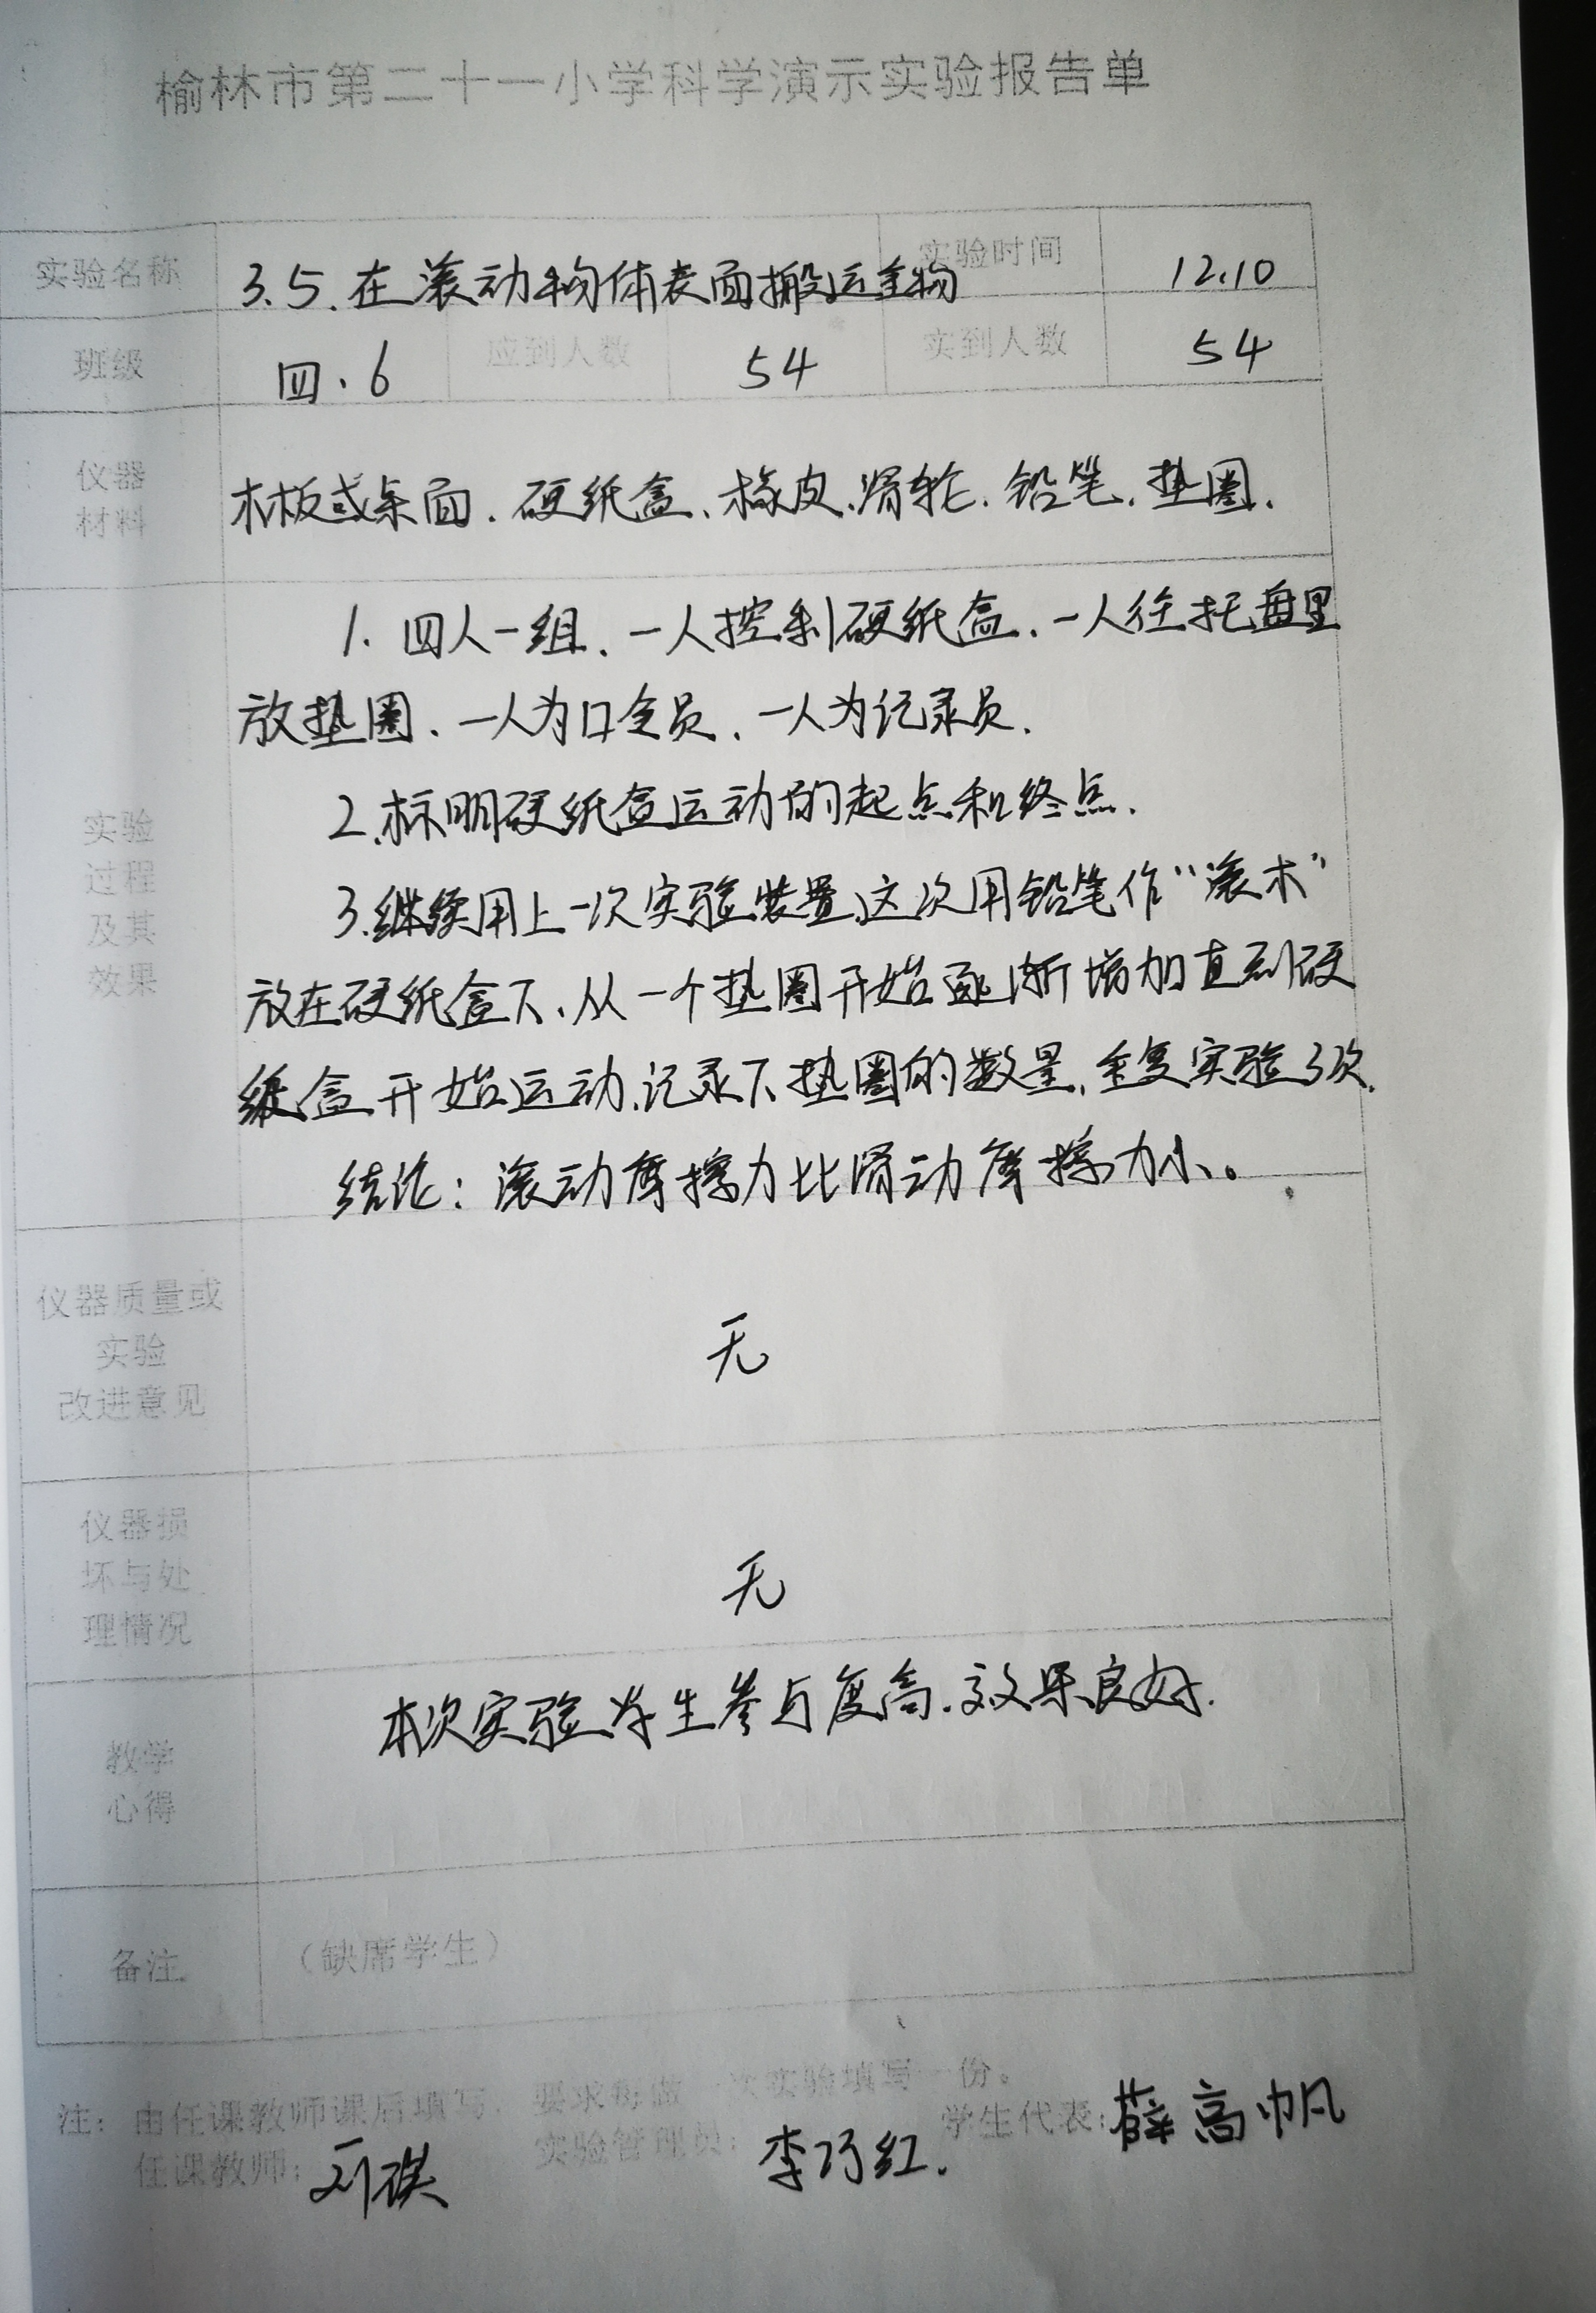 榆林市第二十一小学科学演示实验报告单
实验名称 3.5.在滚动物体表面搬运重物 实验时间 12.10
班级 四.6 应到人数 54 实到人数 54
仪器
材料
木板或桌面.硬纸盒、橡皮.滑轮.铅笔.垫圈.
实验
过程
及其
效果
1.四人一组、一人控制硬纸盒、一人往托盘里
放垫圈、一人为口令员、一人为记录员.
2.标明硬纸盒运动的起点和终点.
3.继续用上一次实验装置.这次用铅笔作“滚木”
放在硬纸盒下、从一个垫圈开始逐渐增加直到硬
纸盒开始运动.记录下垫圈的数量,重复实验3次.
结论:滚动摩擦力比滑动摩擦力小。
仪器质量或
实验
改进意见
无
仪器损
坏与处
理情况
无
教学
心得
本次实验学生参与度高.效果良好.
备注 (缺席学生)
注:由任课教师课后填写,要求每做一次实验填写一份。
任课教师: 刘祺 实验管理员: 李巧红. 学生代表: 薛高帆